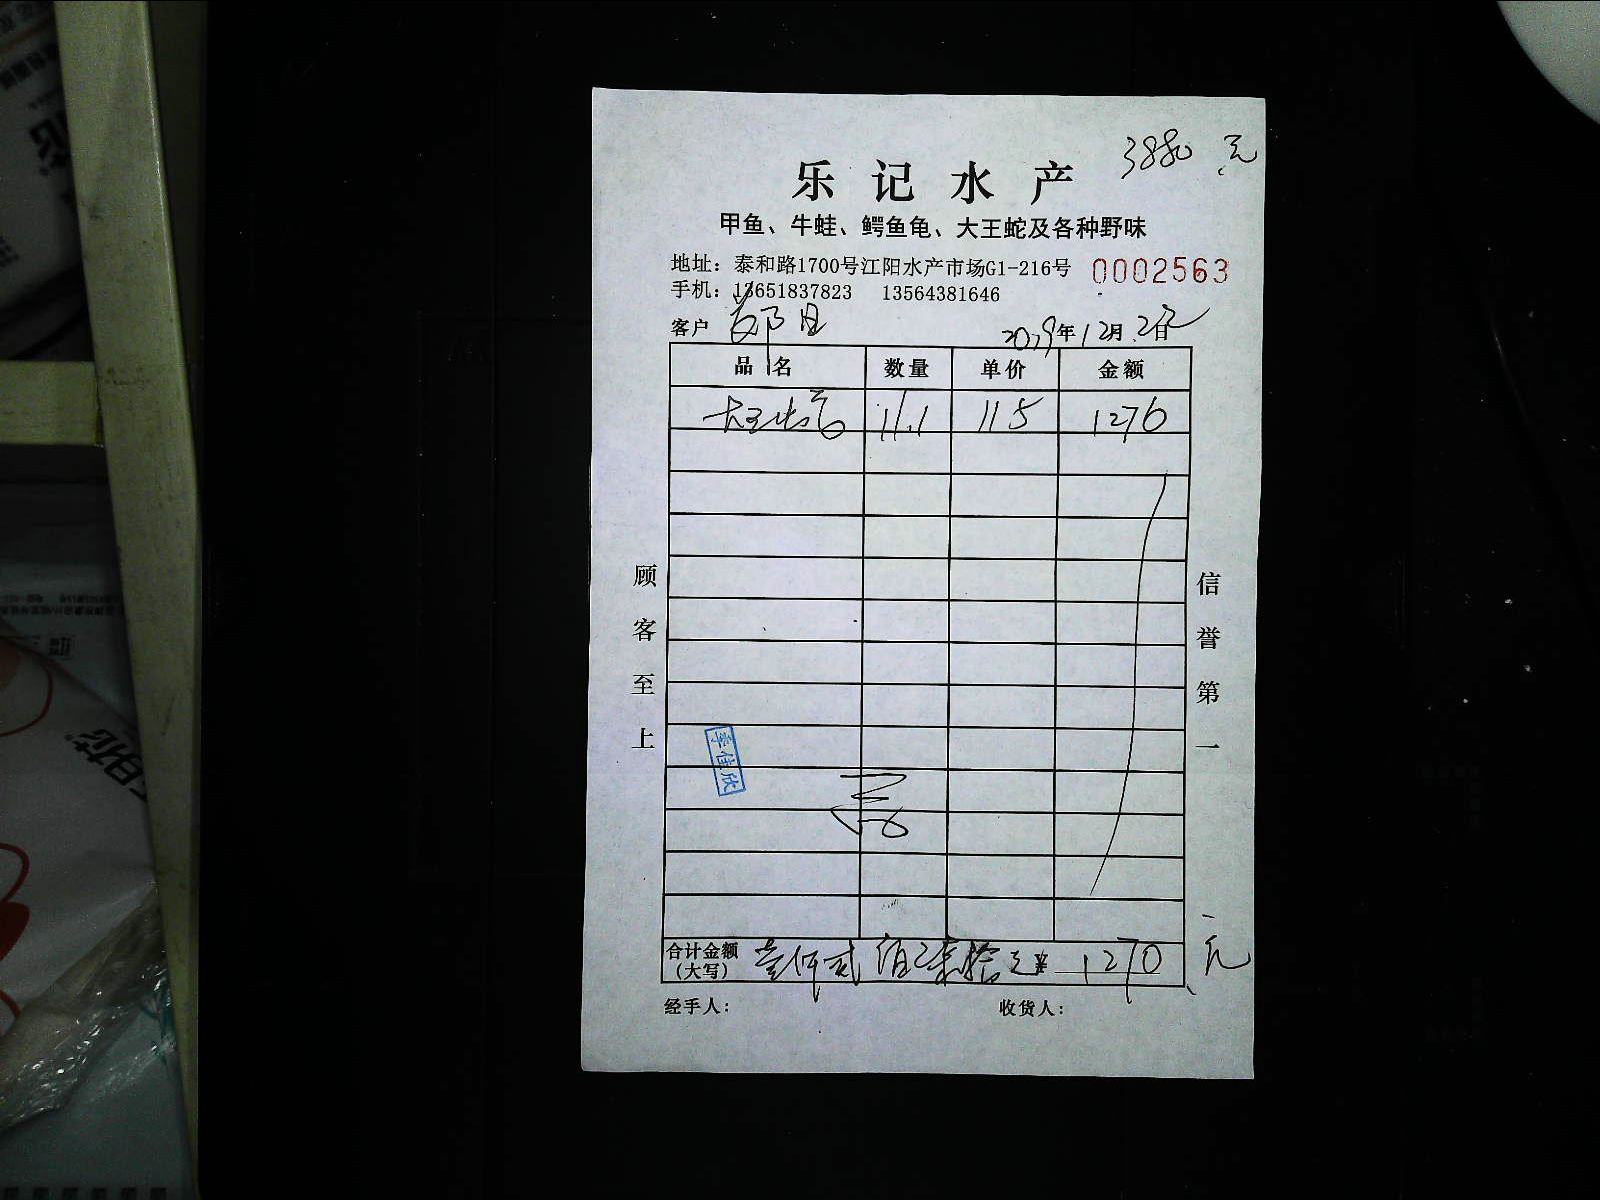 3880 元
乐记水产
甲鱼、牛蛙、鳄鱼龟、大王蛇及各种野味
地址：泰和路1700号江阳水产市场G1-216号 0002563
手机：13651837823 13564381646
客户 年12月2日
品名 数量 单价 金额
大王蛇 11.1 115 1276
顾客至上
信誉第一
李佳欣
合计金额（大写） 壹仟贰佰柒拾元 ¥ 1270 元
经手人： 收货人：